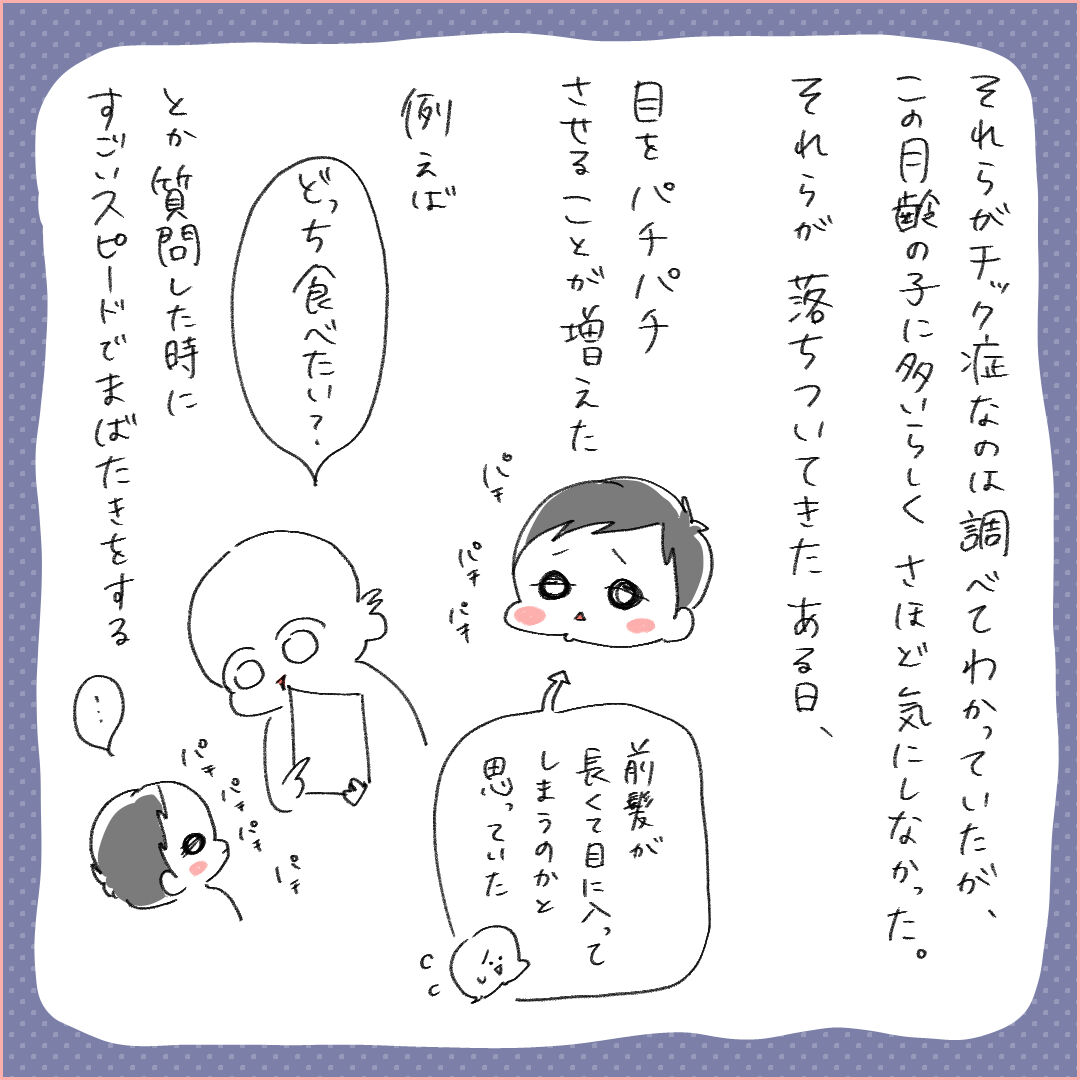 それらがチック症なのは調べてわかっていたが、
この月齢の子に多いらしく さほど気にしなかった。
それらが落ちついてきたある日、
目をパチパチ
させることが増えた
パチ
パチ
パチ
前髪が
長くて目に入って
しまうのかと
思っていた
例えば
どっち食べたい?
とか質問した時に
すごいスピードでまばたきをする
…
パチ
パチ
パチ
パチ